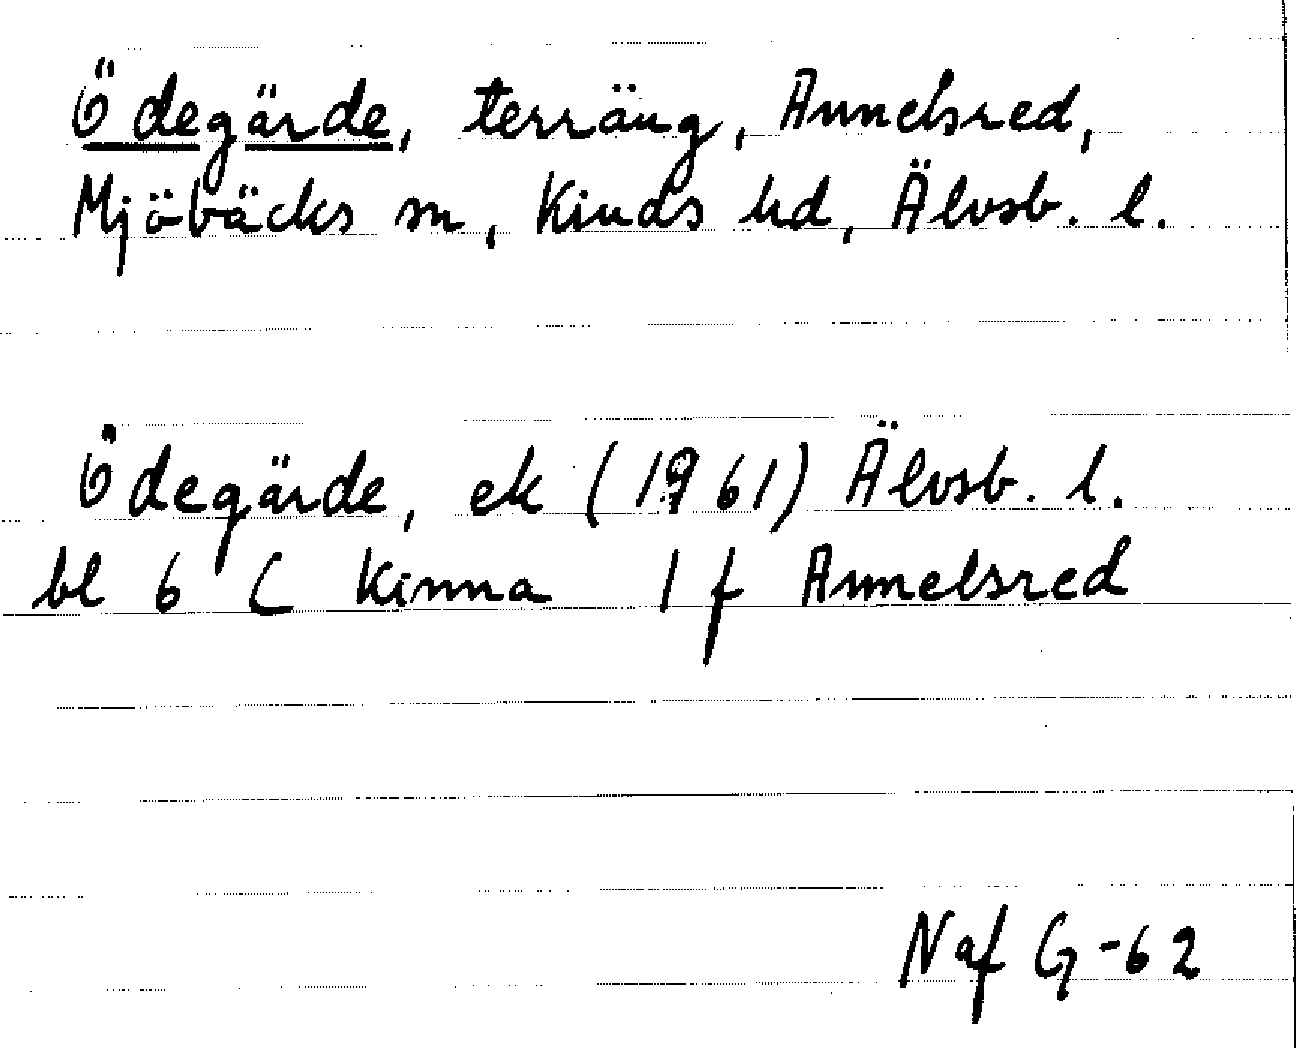 Ödegärde, terräng, Annelsred,
Mjöbäcks sn, Kinds hd, Älvsb. l.
Ödegärde, ek (1961) Älvsb. l.
bl 6 C Kinna 1 f Annelsred
Naf G-62